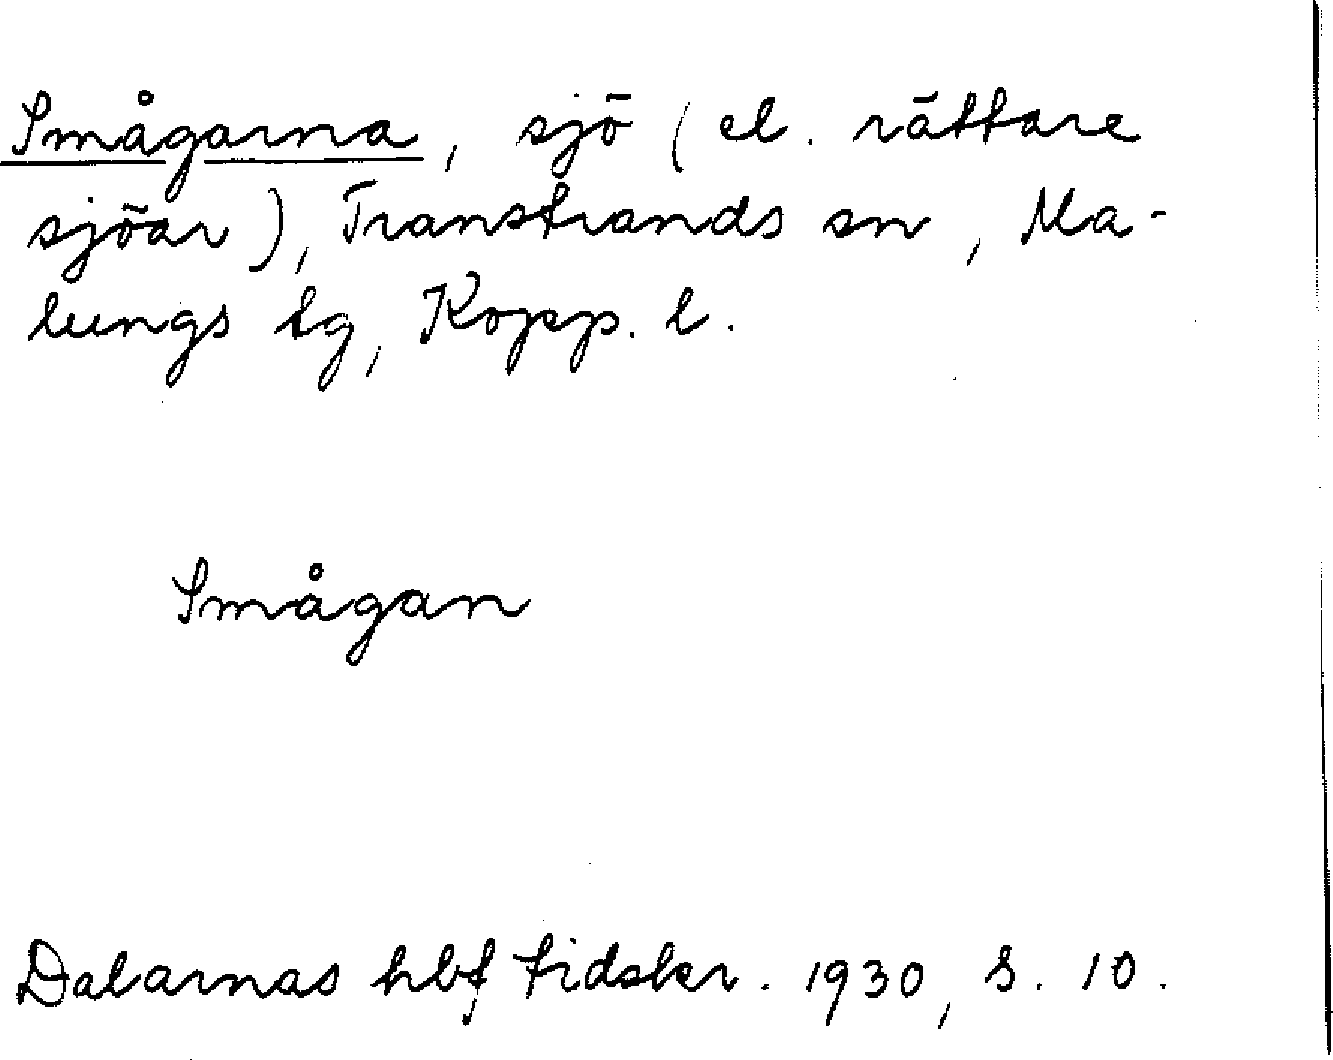 Smågarna, sjö (el. rättare
sjöar), Transtrands sn, Ma-
lungs tg, Kopp. l.
Smågan
Dalarnas hbf tidskr. 1930, s. 10.